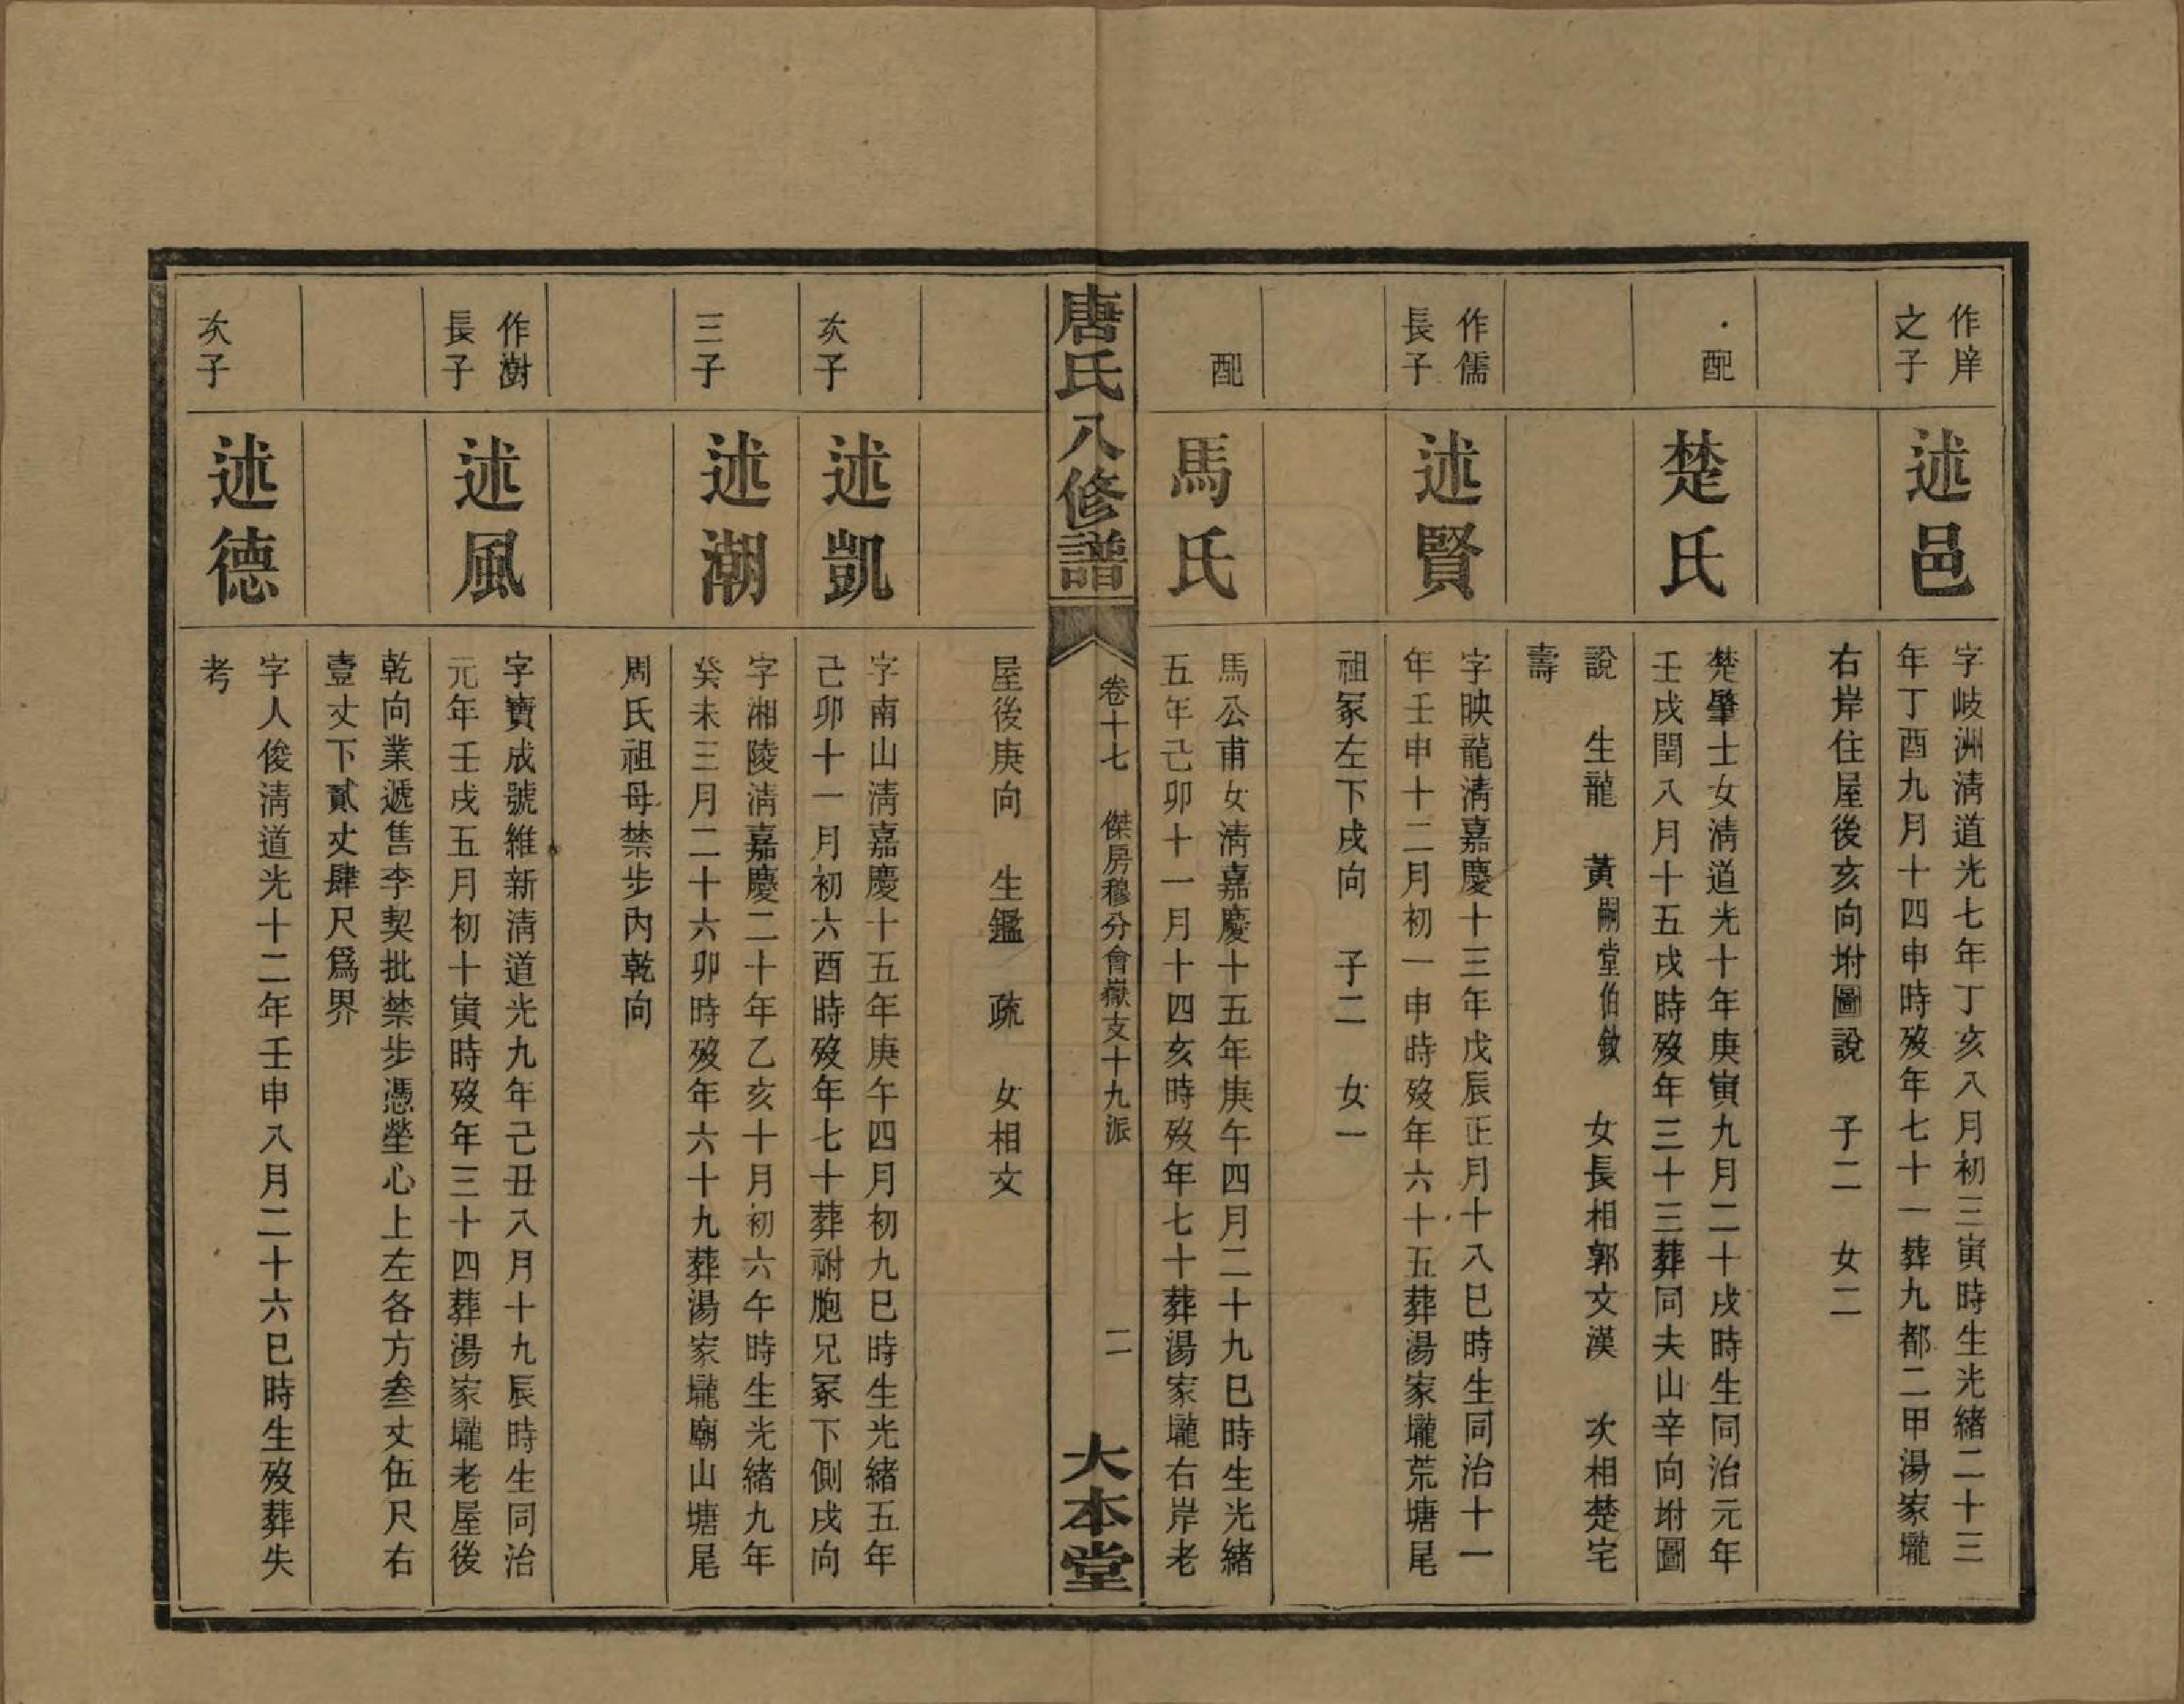 作庠
之子
述邑
字岐洲淸道光七年丁亥八月初三寅時生光緖二十三
年丁酉九月十四申時歿年七十一葬九都二甲湯家壠
右岸住屋後亥向坿圖說　子二　女二
配
楚氏
楚肇士女淸道光十年庚寅九月二十戌時生同治元年
壬戌閏八月十五戌時歿年三十三葬同夫山辛向坿圖
說　生龍　黃嗣堂伯欽　女長相郭文漢　次相楚宅
壽
作儒
長子
述賢
字映龍淸嘉慶十三年戊辰正月十八巳時生同治十一
年壬申十二月初一申時歿年六十五葬湯家壠荒塘尾
祖冢左下戌向　子二　女一
配
馬氏
馬公甫女淸嘉慶十五年庚午四月二十九巳時生光緖
五年己卯十一月十四亥時歿年七十葬湯家壠右岸老
唐氏八修譜
卷十七　傑房穆分會嶽支十九派
二
大本堂
屋後庚向　生鑑　疏　女相文
次子
述凱
字南山淸嘉慶十五年庚午四月初九巳時生光緖五年
己卯十一月初六酉時歿年七十葬祔胞兄冢下側戌向
三子
述潮
字湘陵淸嘉慶二十年乙亥十月初六午時生光緖九年
癸未三月二十六卯時歿年六十九葬湯家壠廟山塘尾
周氏祖母禁步內乾向
作澍
長子
述風
字寶成號維新淸道光九年己丑八月十九辰時生同治
元年壬戌五月初十寅時歿年三十四葬湯家壠老屋後
乾向業遞售李契批禁步憑塋心上左各方叁丈伍尺右
壹丈下貳丈肆尺爲界
次子
述德
字人俊淸道光十二年壬申八月二十六巳時生歿葬失
考